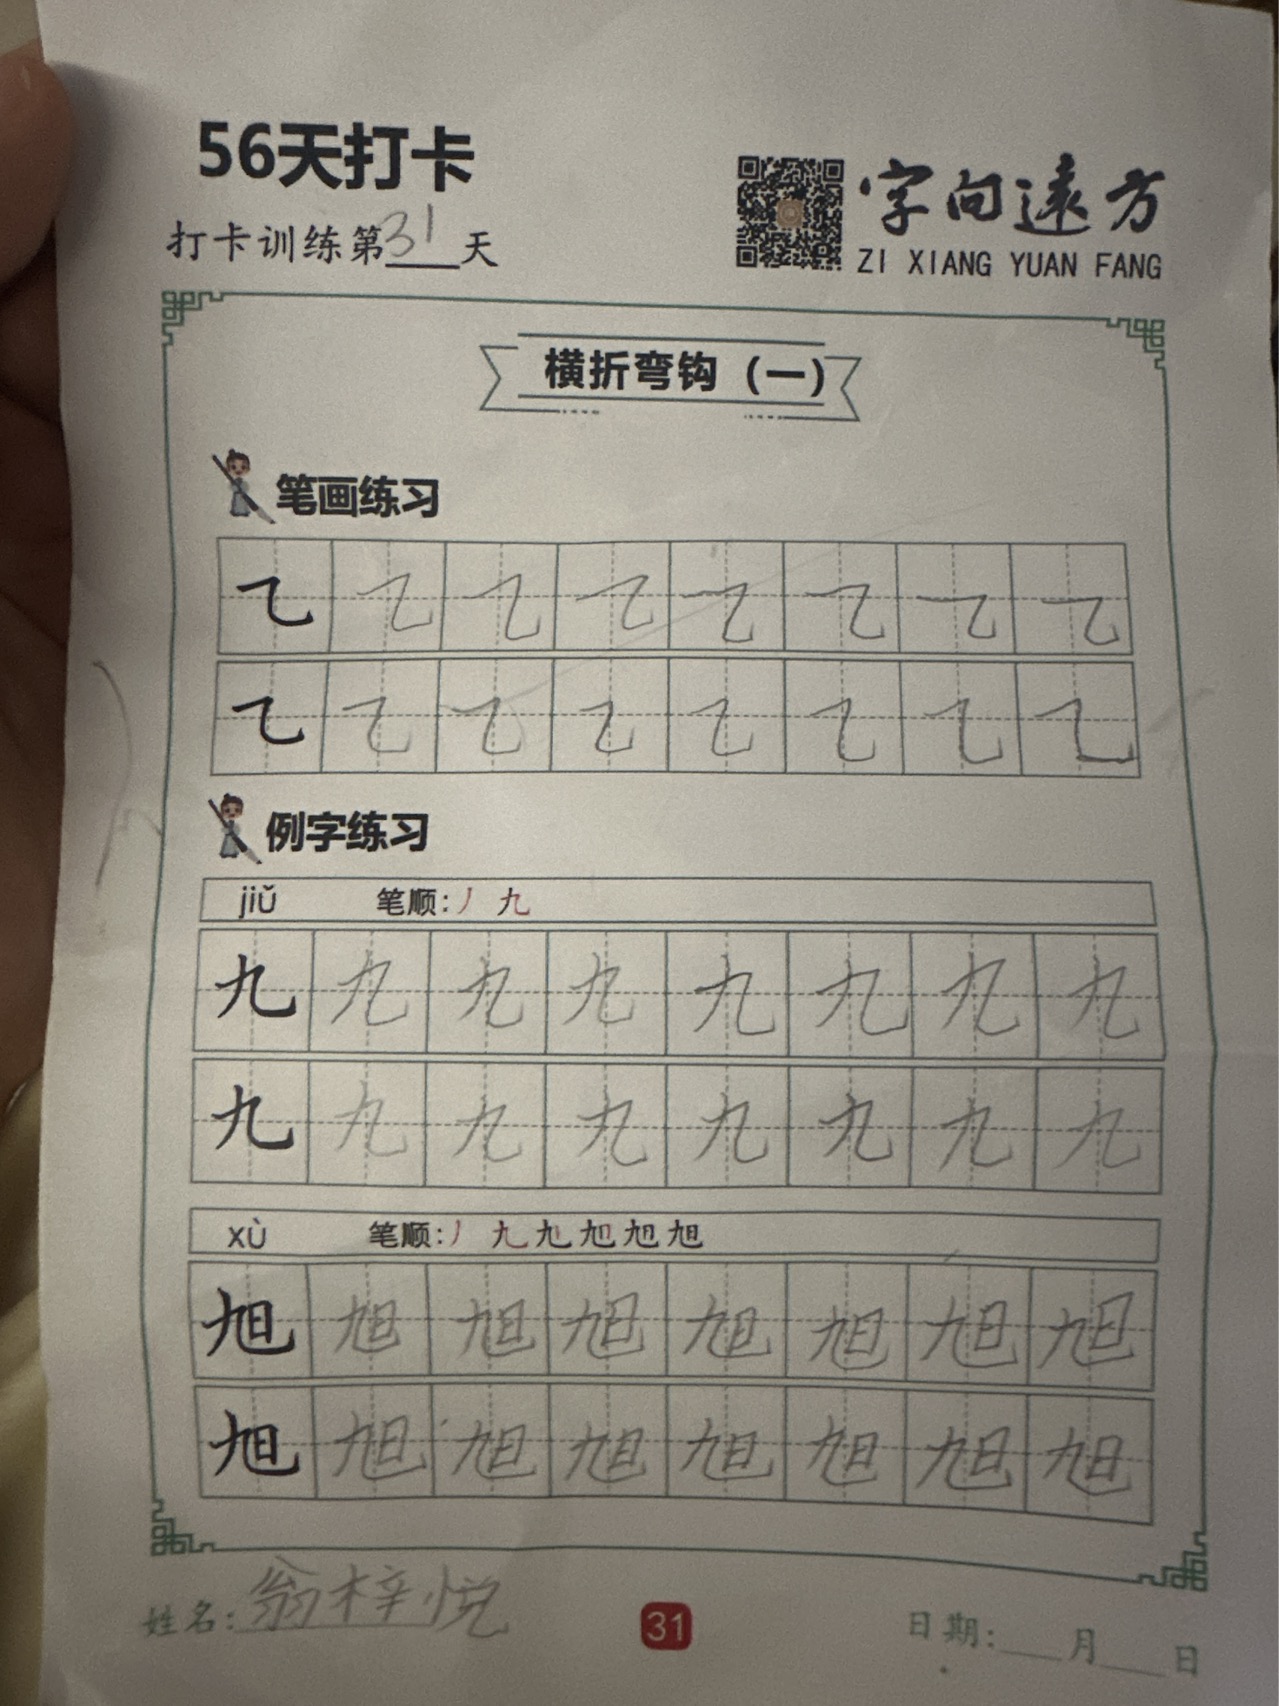 56天打卡
打卡训练第31天
字向遠方
ZI XIANG YUAN FANG
横折弯钩（一）
笔画练习
㇈ ㇈ ㇈ ㇈ ㇈ ㇈ ㇈ ㇈
㇈ ㇈ ㇈ ㇈ ㇈ ㇈ ㇈ ㇈
例字练习
jiǔ 笔顺：丿 九
九 九 九 九 九 九 九 九
九 九 九 九 九 九 九 九
xù 笔顺：丿 九 九 旭 旭 旭
旭 旭 旭 旭 旭 旭 旭 旭
旭 旭 旭 旭 旭 旭 旭 旭
姓名：翁梓悦
31
日期：___月___日